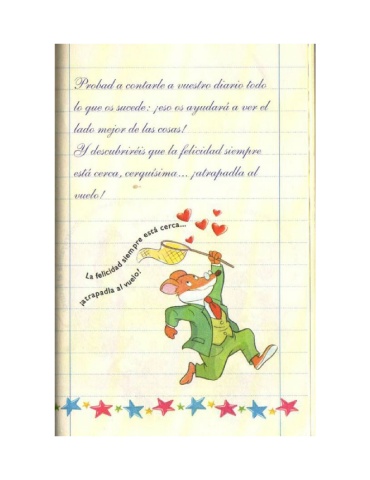 Probad a contarle a vuestro diario todo
lo que os sucede: ¡eso os ayudará a ver el
lado mejor de las cosas!
Y descubriréis que la felicidad siempre
está cerca, cerquísima... ¡atrapadla al
vuelo!
La felicidad siempre está cerca...
¡atrapadla al vuelo!